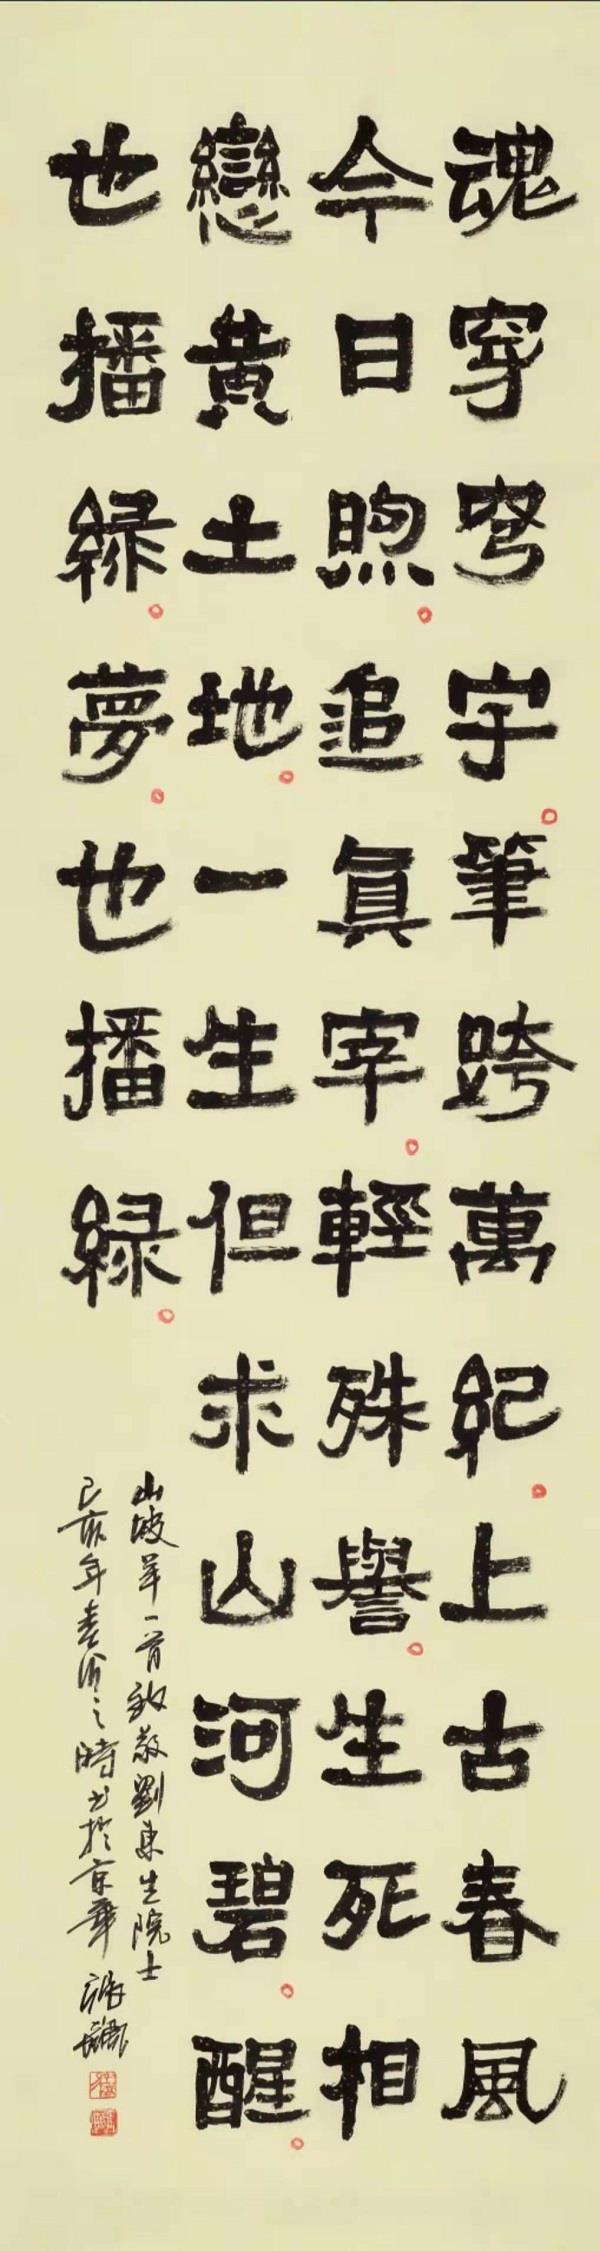 魂穿穹宇筆跨萬紀上古春風
今日煦追真宰輕殊譽生死相
戀黃土地一生但求山河碧醒
也播綠夢也播綠
山坡羊一首致敬劉東生院士
己亥年春分之時書於京華